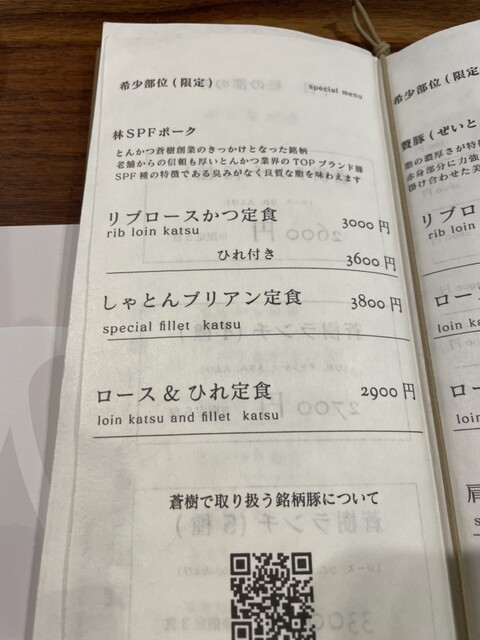 希少部位(限定)
special menu
林SPFポーク
とんかつ蒼樹創業のきっかけとなった銘柄
老舗からの信頼も厚いとんかつ業界のTOPブランド豚
SPF種の特徴である臭みがなく良質な脂を味わえます
リブロースかつ定食 3000円
rib loin katsu
ひれ付き 3600円
しゃとんブリアン定食 3800円
special fillet katsu
ロース&ひれ定食 2900円
loin katsu and fillet katsu
蒼樹で取り扱う銘柄豚について
希少部位(限定
脂の濃厚さが特
赤身部分に力強
掛け合わせた美
リブロ
rib loin
ロー
loin ka
ロー
loin
肩